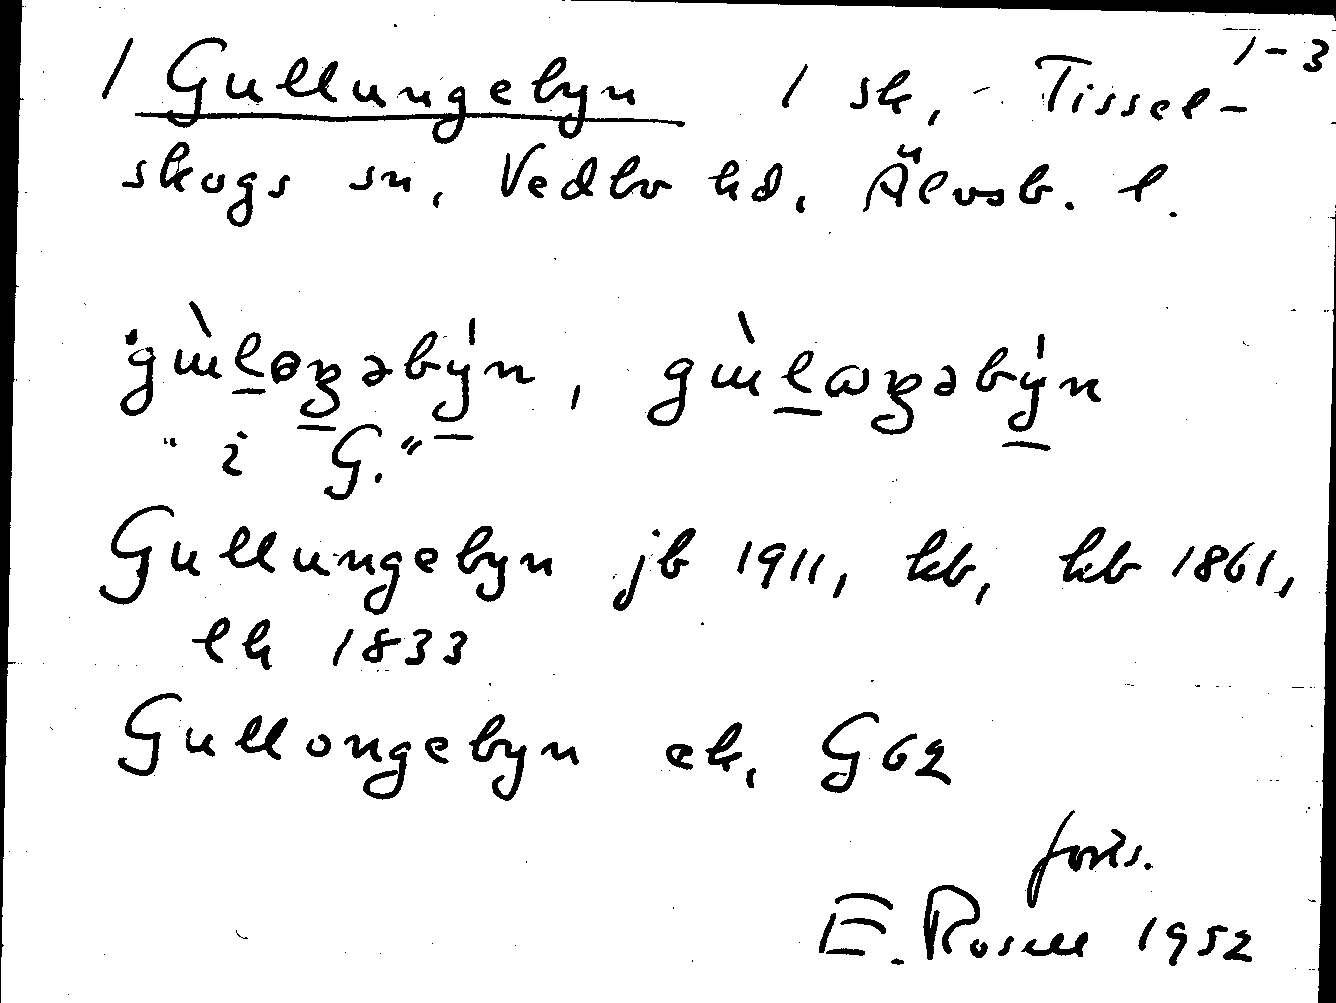 1-3
/ Gullungebyn / sk, Tissel-
skogs sn, Vedbo hd, Älvsb. l.
"i G."
Gullungebyn jb 1911, kb, hb 1861,
lh 1833
Gullongebyn ek, G62
forts.
E. Rosell 1952